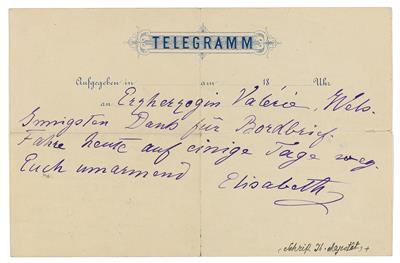 TELEGRAMM
Aufgegeben in am 18 Uhr
an Erzherzogin Valérie, Wels.
Innigsten Dank für Bordbrief.
Fahre heute auf einige Tage weg.
Euch umarmend Elisabeth
Schrift II.